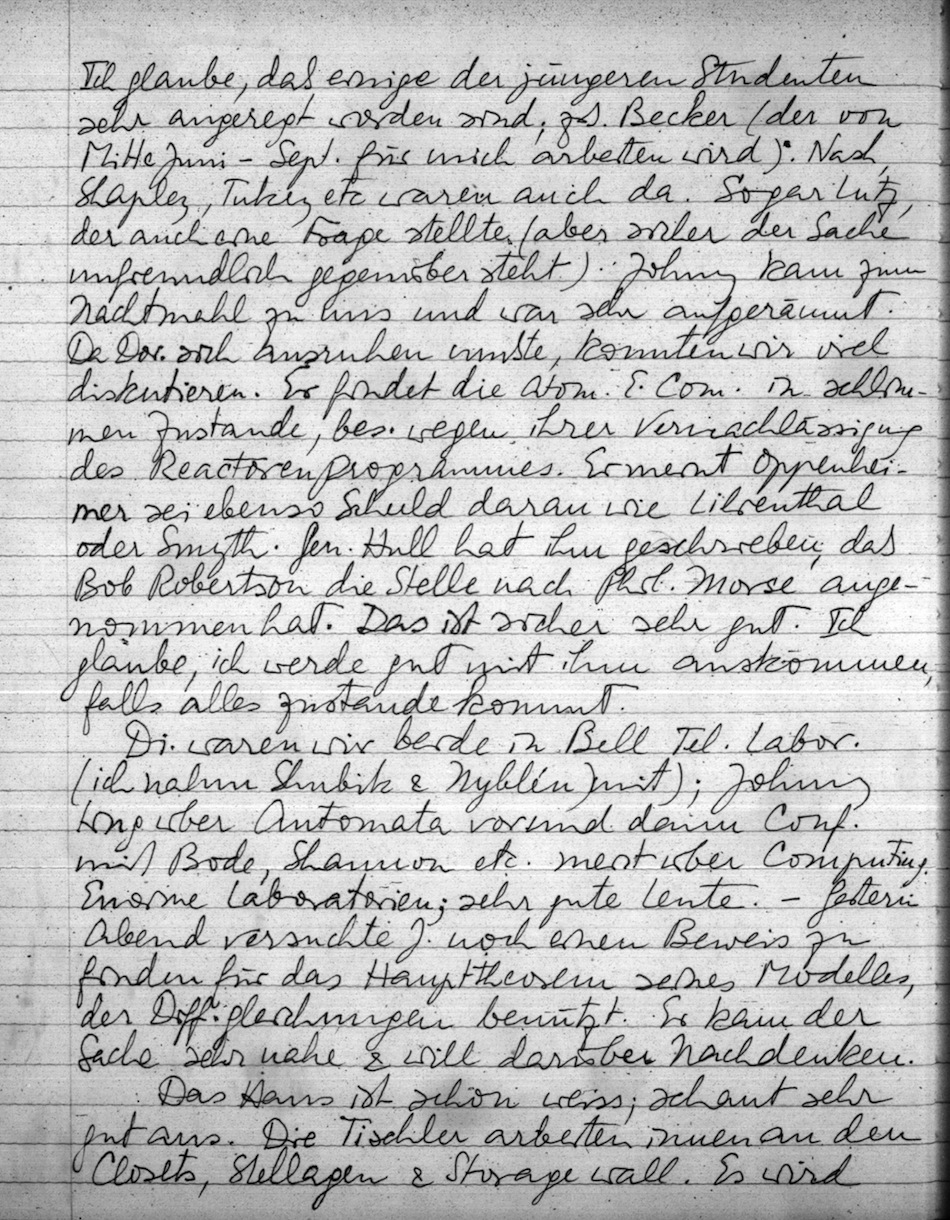 Ich glaube, daß einige der jüngeren Studenten
sehr angeregt worden sind, z.B. Becker (der von
Mitte Juni – Sept. für mich arbeiten wird). Nash,
Shapley, Tukey etc waren auch da. Sogar Lutz,
der auch eine Frage stellte (aber sicher der Sache
unfreundlich gegenüber steht). Johnny kam zum
Nachtmahl zu uns und war sehr aufgeräumt.
Da Dor. sich ausruhen musste, konnten wir viel
diskutieren. Er findet die Atom. E. Com. in schlim-
men Zustande, bes. wegen ihrer Vernachlässigung
des Reactorenprogrammes. Er meint Oppenhei-
mer sei ebenso Schuld daran wie Lilienthal
oder Smyth. Gen. Hull hat ihm geschrieben, daß
Bob Robertson die Stelle nach Phil. Morse ange-
nommen hat. Das ist sicher sehr gut. Ich
glaube, ich werde gut mit ihm auskommen,
falls alles zustande kommt.
Di. waren wir beide in Bell Tel. Labor.
(ich nahm Shubik & Nyblén mit); Johnny
trug über Automata vor und dann Conf.
mit Bode, Shannon etc. meist über Computing.
Enorme Laboratorien; sehr gute Leute. – Gestern
Abend versuchte J. noch einen Beweis zu
finden für das Haupttheorem seines Modelles,
der Diff. gleichungen benützt. Er kam der
Sache sehr nahe & will darüber nachdenken.
Das Haus ist schon weiss; schaut sehr
gut aus. Die Tischler arbeiten innen an den
Closets, Stellagen & Storage wall. Es wird